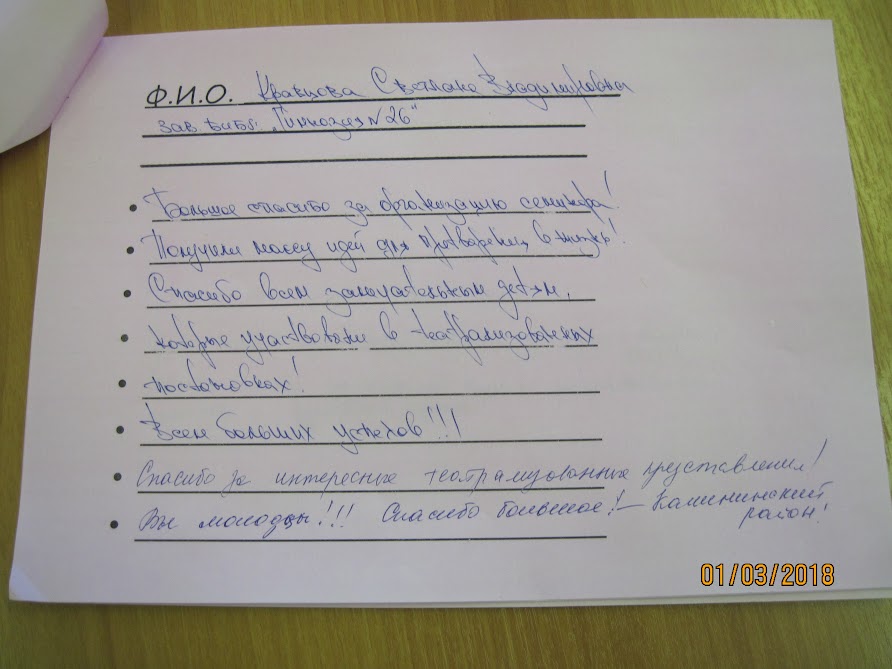 Ф.И.О. Кравцова Светлана Владимировна
зав. библ. „Гимназия №26"
• Большое спасибо за организацию семинара!
• Получили массу идей для претворения в жизнь!
• Спасибо всем замечательным детям,
• которые участвовали в театрализованных
• постановках!
• Всем больших успехов!!!
• Спасибо за интересные театрализованные представления!
• Вы молодцы!!! Спасибо большое! – Калининский
район!
01/03/2018